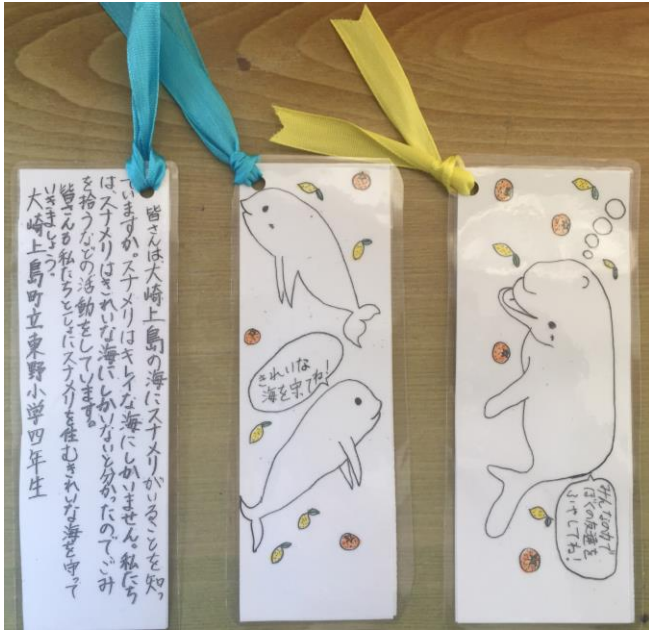 皆さんは大崎上島の海にスナメリがいることを知っ
ていますか。スナメリはキレイな海にしかいません。私たち
は、スナメリはきれいな海にしかいないと分かったのでごみ
を拾うなどの活動をしています。
皆さんも私たちと一しょにスナメリを住むきれいな海を守って
いきましょう。
大崎上島町立東野小学四年生
きれいな
海を守ってね!
みんなの力で
ぼくの友達を
ふやしてね!